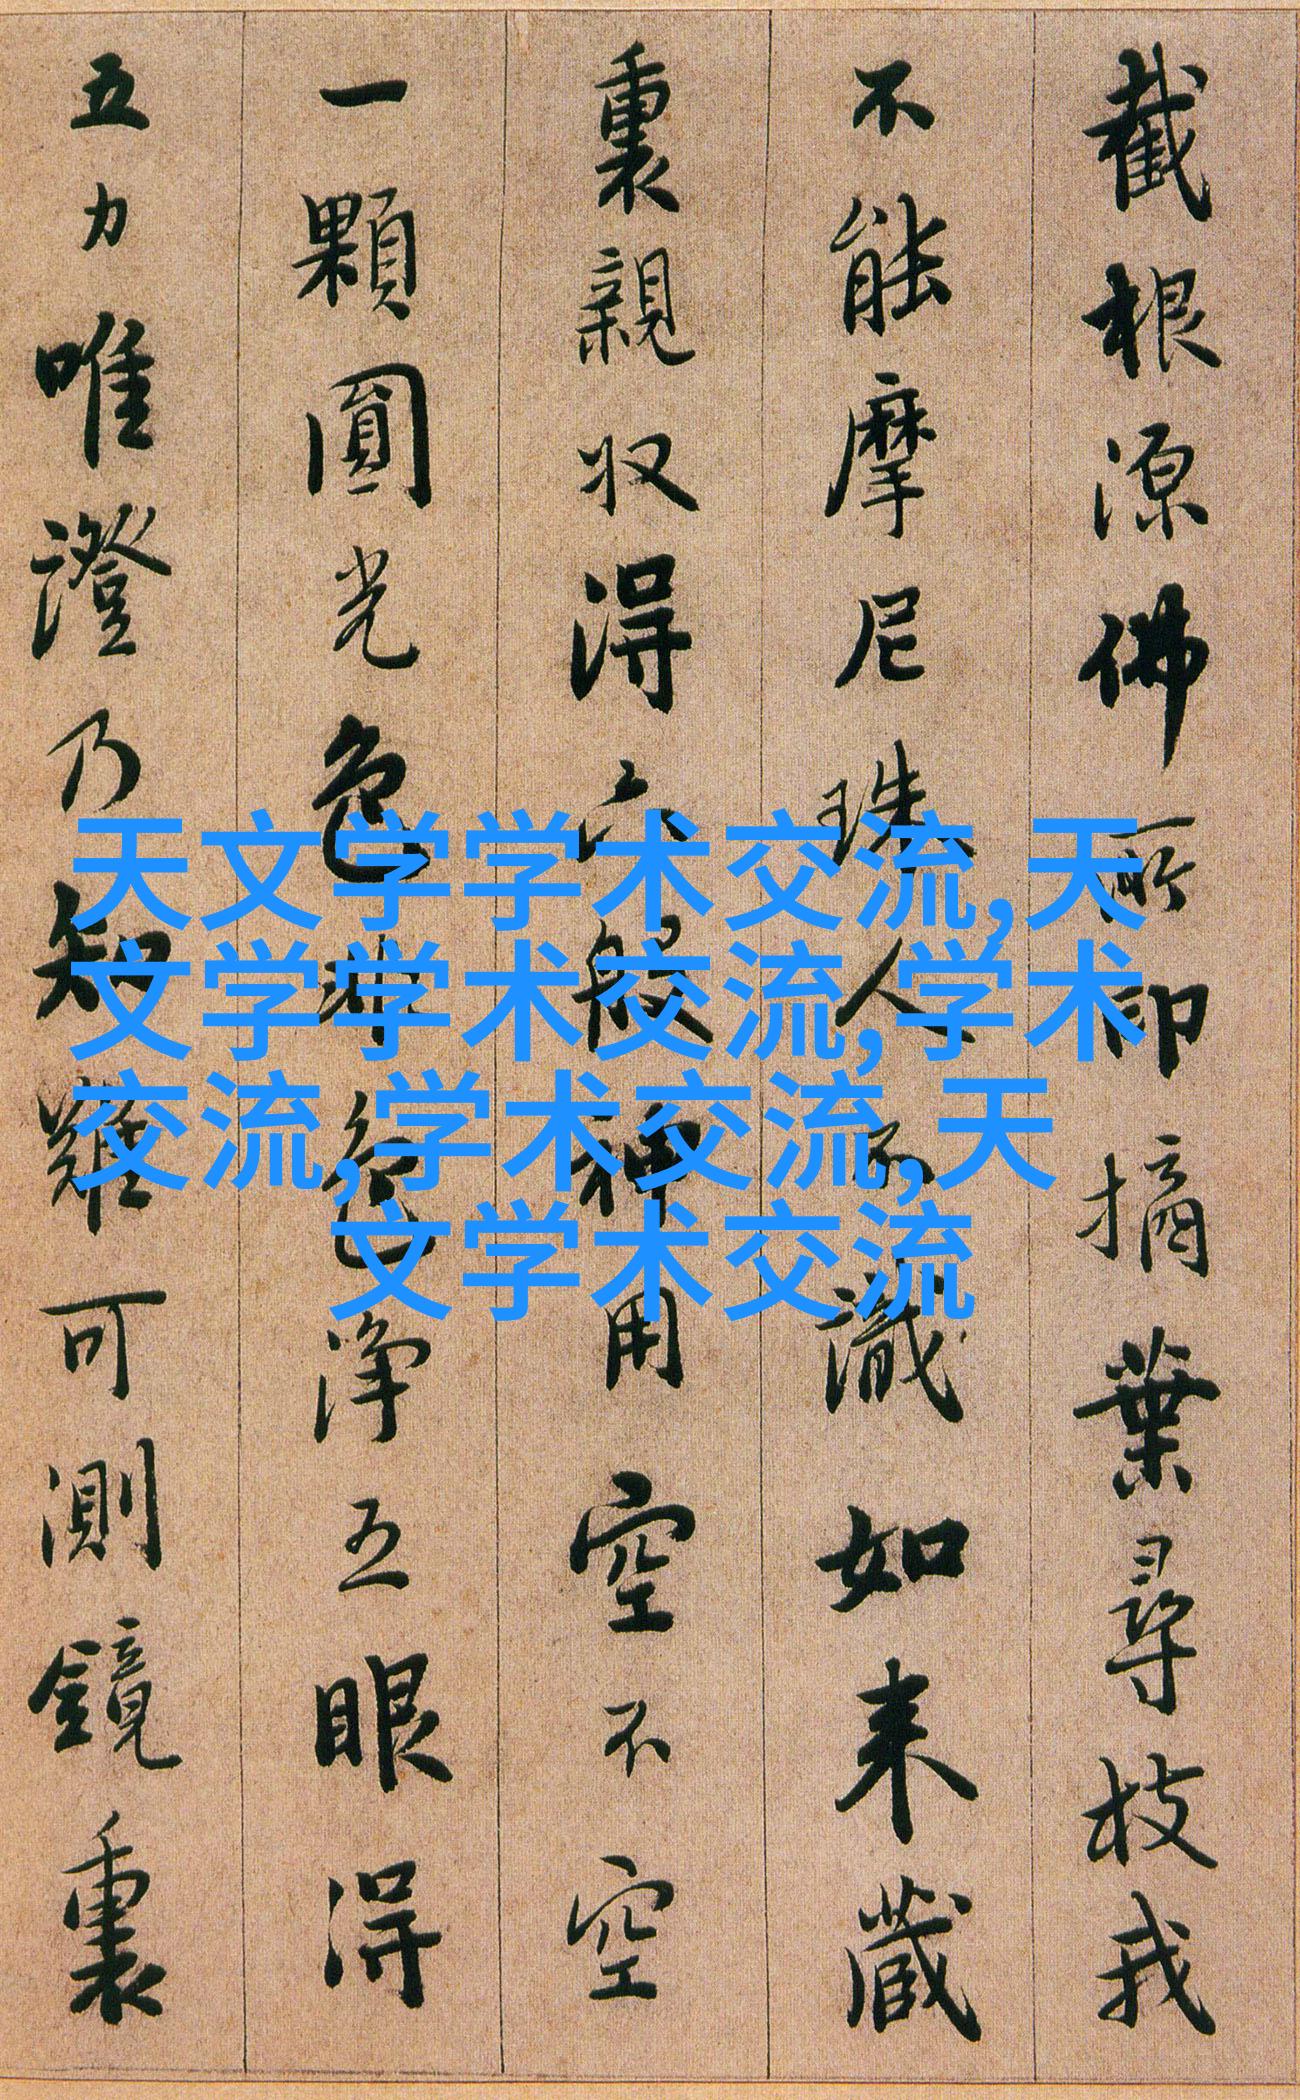 截根源佛所印摘葉尋枝我
不能摩尼珠人不識如来藏
裏親収得六般神用空不空
一顆圓光色非色淨五眼得
五力唯證乃知難可測鏡裏
天文学学术交流,天
文学学术交流,学术
交流,学术交流,天
文学术交流